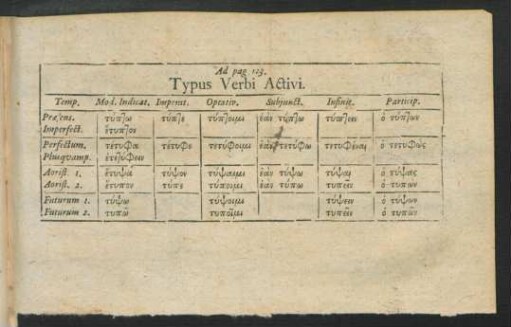 Ad pag 123.
Typus Verbi Activi.
Temp. Mod. Indicat. Imperat. Optativ. Subjunct. Infinit. Particip.
Præsens. τύπτω τύπτε τύπτοιμι ἐὰν τύπτω τύπτειν ὁ τύπτων
Imperfect. ἔτυπτον
Perfectum. τέτυφα τέτυφε τετύφοιμι ἐὰν τετύφω τετυφέναι ὁ τετυφώς
Plusquamp. ἐτετύφειν
Aorist. 1. ἔτυψα τύψον τύψαιμι ἐὰν τύψω τύψαι ὁ τύψας
Aorist. 2. ἔτυπον τύπε τύποιμι ἐὰν τύπω τυπεῖν ὁ τυπών
Futurum 1. τύψω τύψοιμι τύψειν ὁ τύψων
Futurum 2. τυπῶ τυποῖμι τυπεῖν ὁ τυπῶν